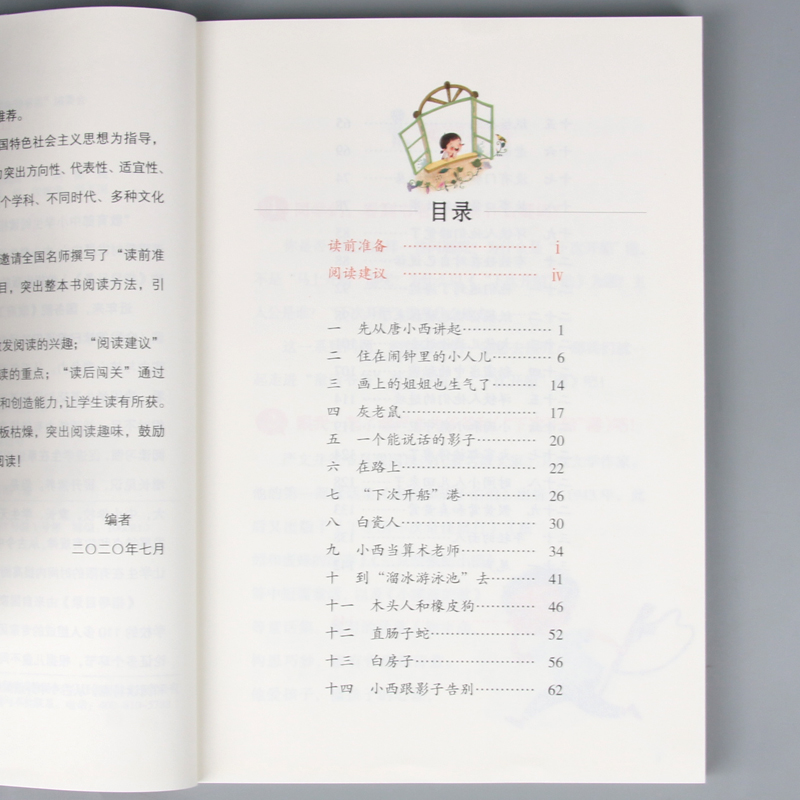 推荐。
国特色社会主义思想为指导，
突出方向性、代表性、适宜性、
个学科、不同时代、多种文化
邀请全国名师撰写了“读前准
目，突出整本书阅读方法，引
发阅读的兴趣；“阅读建议”
读的重点；“读后闯关”通过
和创造能力，让学生读有所获。
板枯燥，突出阅读趣味，鼓励
阅读！
编者
二〇二〇年七月
目录
读前准备 ………………………… i
阅读建议 ………………………… iv
一 先从唐小西讲起……………… 1
二 住在闹钟里的小人儿………… 6
三 画上的姐姐也生气了………… 14
四 灰老鼠………………………… 17
五 一个能说话的影子…………… 20
六 在路上………………………… 22
七 “下次开船”港……………… 26
八 白瓷人………………………… 30
九 小西当算术老师……………… 34
十 到“溜冰游泳池”去………… 41
十一 木头人和橡皮狗…………… 46
十二 直肠子蛇…………………… 52
十三 白房子……………………… 56
十四 小西跟影子告别…………… 62